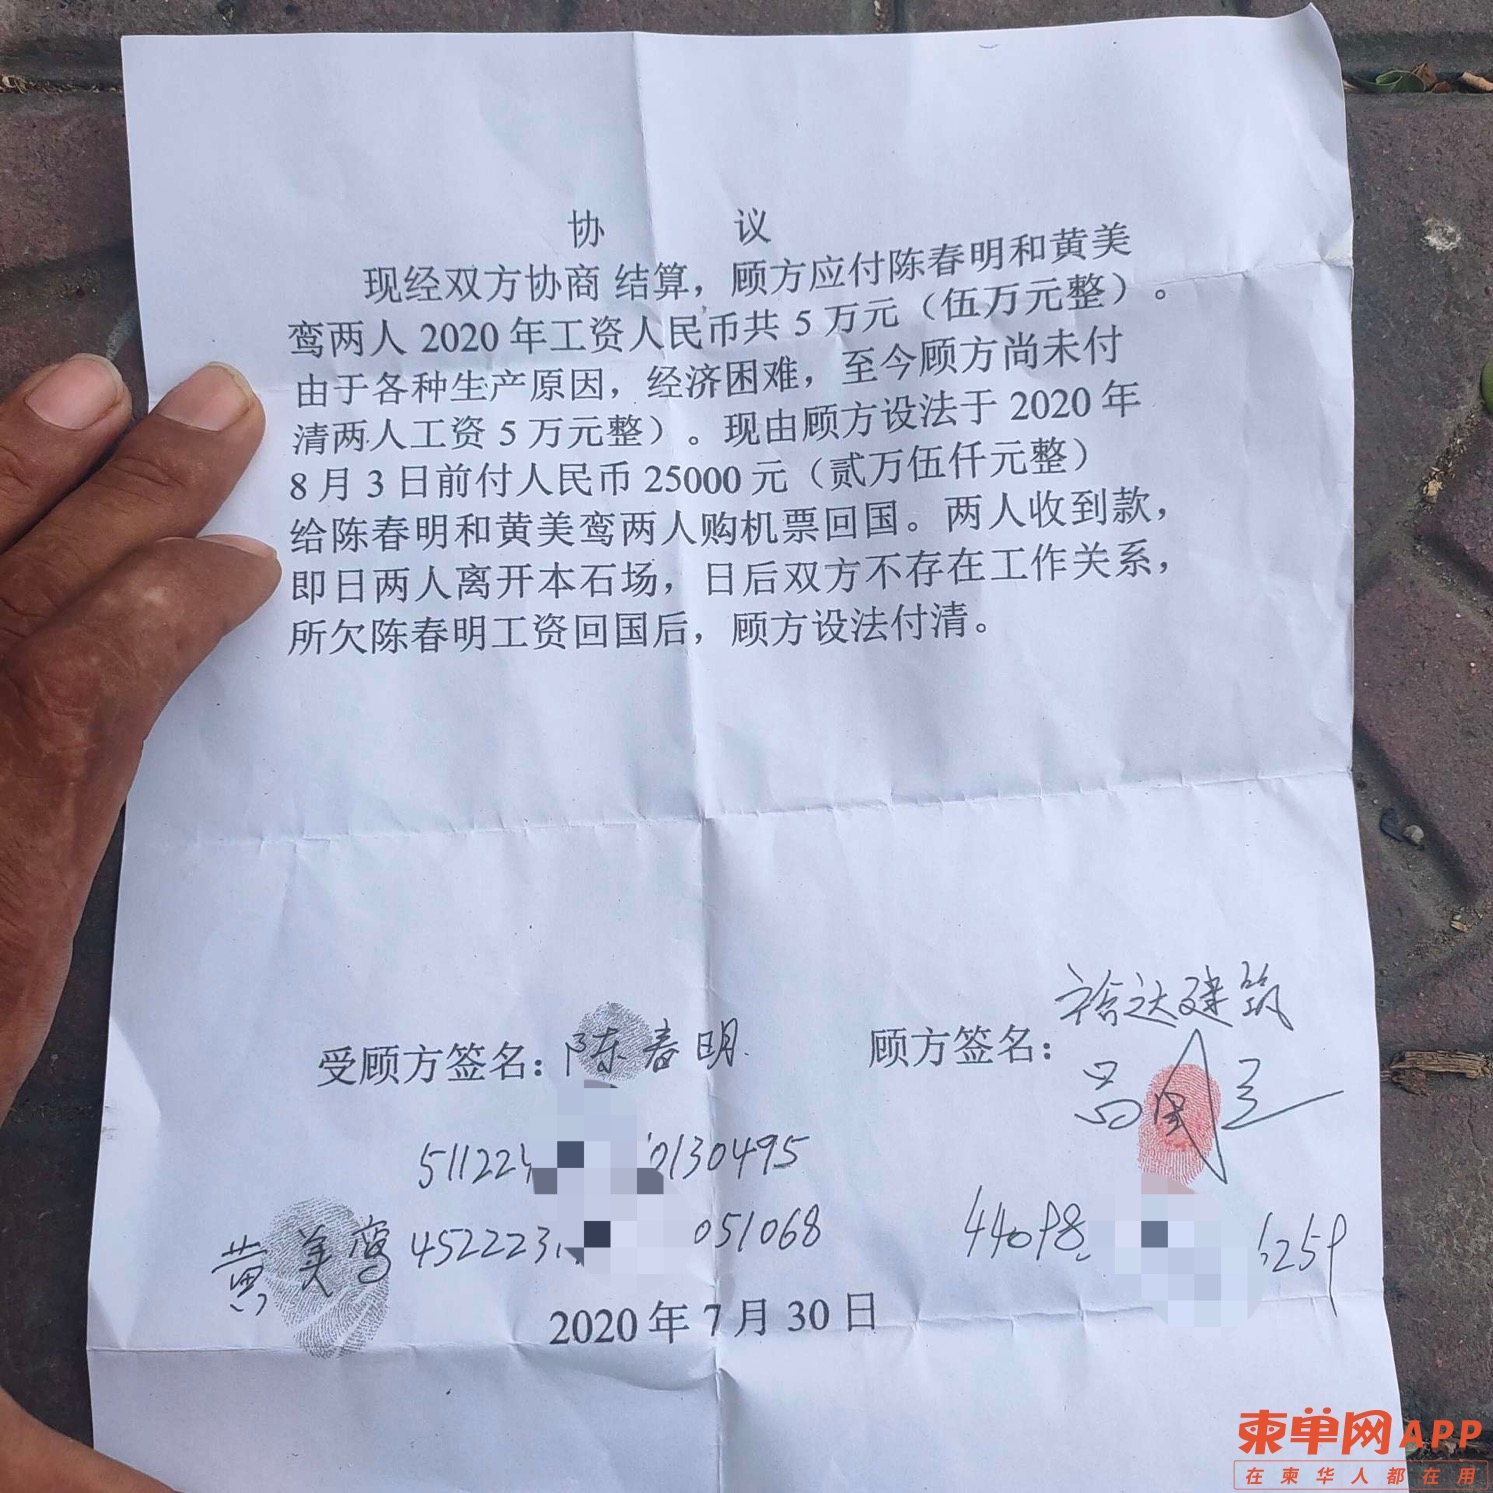 协 议
现经双方协商 结算，顾方应付陈春明和黄美
鸾两人 2020 年工资人民币共 5 万元（伍万元整）。
由于各种生产原因，经济困难，至今顾方尚未付
清两人工资 5 万元整）。现由顾方设法于 2020 年
8 月 3 日前付人民币 25000 元（贰万伍仟元整）
给陈春明和黄美鸾两人购机票回国。两人收到款，
即日两人离开本石场，日后双方不存在工作关系，
所欠陈春明工资回国后，顾方设法付清。
裕达建筑
受顾方签名：陈春明 顾方签名：
511224 0130495
黄美鸾 452223 051068 44098 259
2020 年 7 月 30 日
柬单网APP
在柬华人都在用